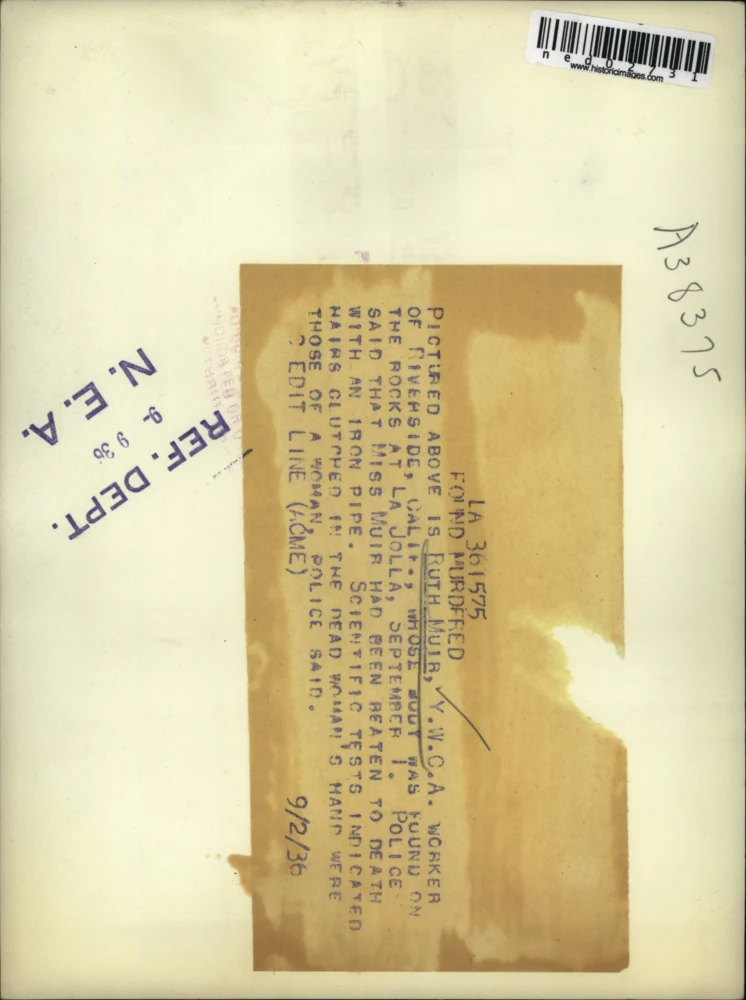 ned02731
www.historicimages.com
A38375
LA 361575
FOUND MURDERED
PICTURED ABOVE IS RUTH MUIR, Y.W.C.A. WORKER
OF RIVERSIDE, CALIF., WHOSE BODY WAS FOUND ON
THE ROCKS AT LA JOLLA, SEPTEMBER 1. POLICE
SAID THAT MISS MUIR HAD BEEN BEATEN TO DEATH
WITH AN IRON PIPE. SCIENTIFIC TESTS INDICATED
HAIRS CLUTCHED IN THE DEAD WOMAN'S HAND WERE
THOSE OF A WOMAN, POLICE SAID.
EDIT LINE (ACME) 9/2/36
REF. DEPT.
9-9 36
N. E. A.